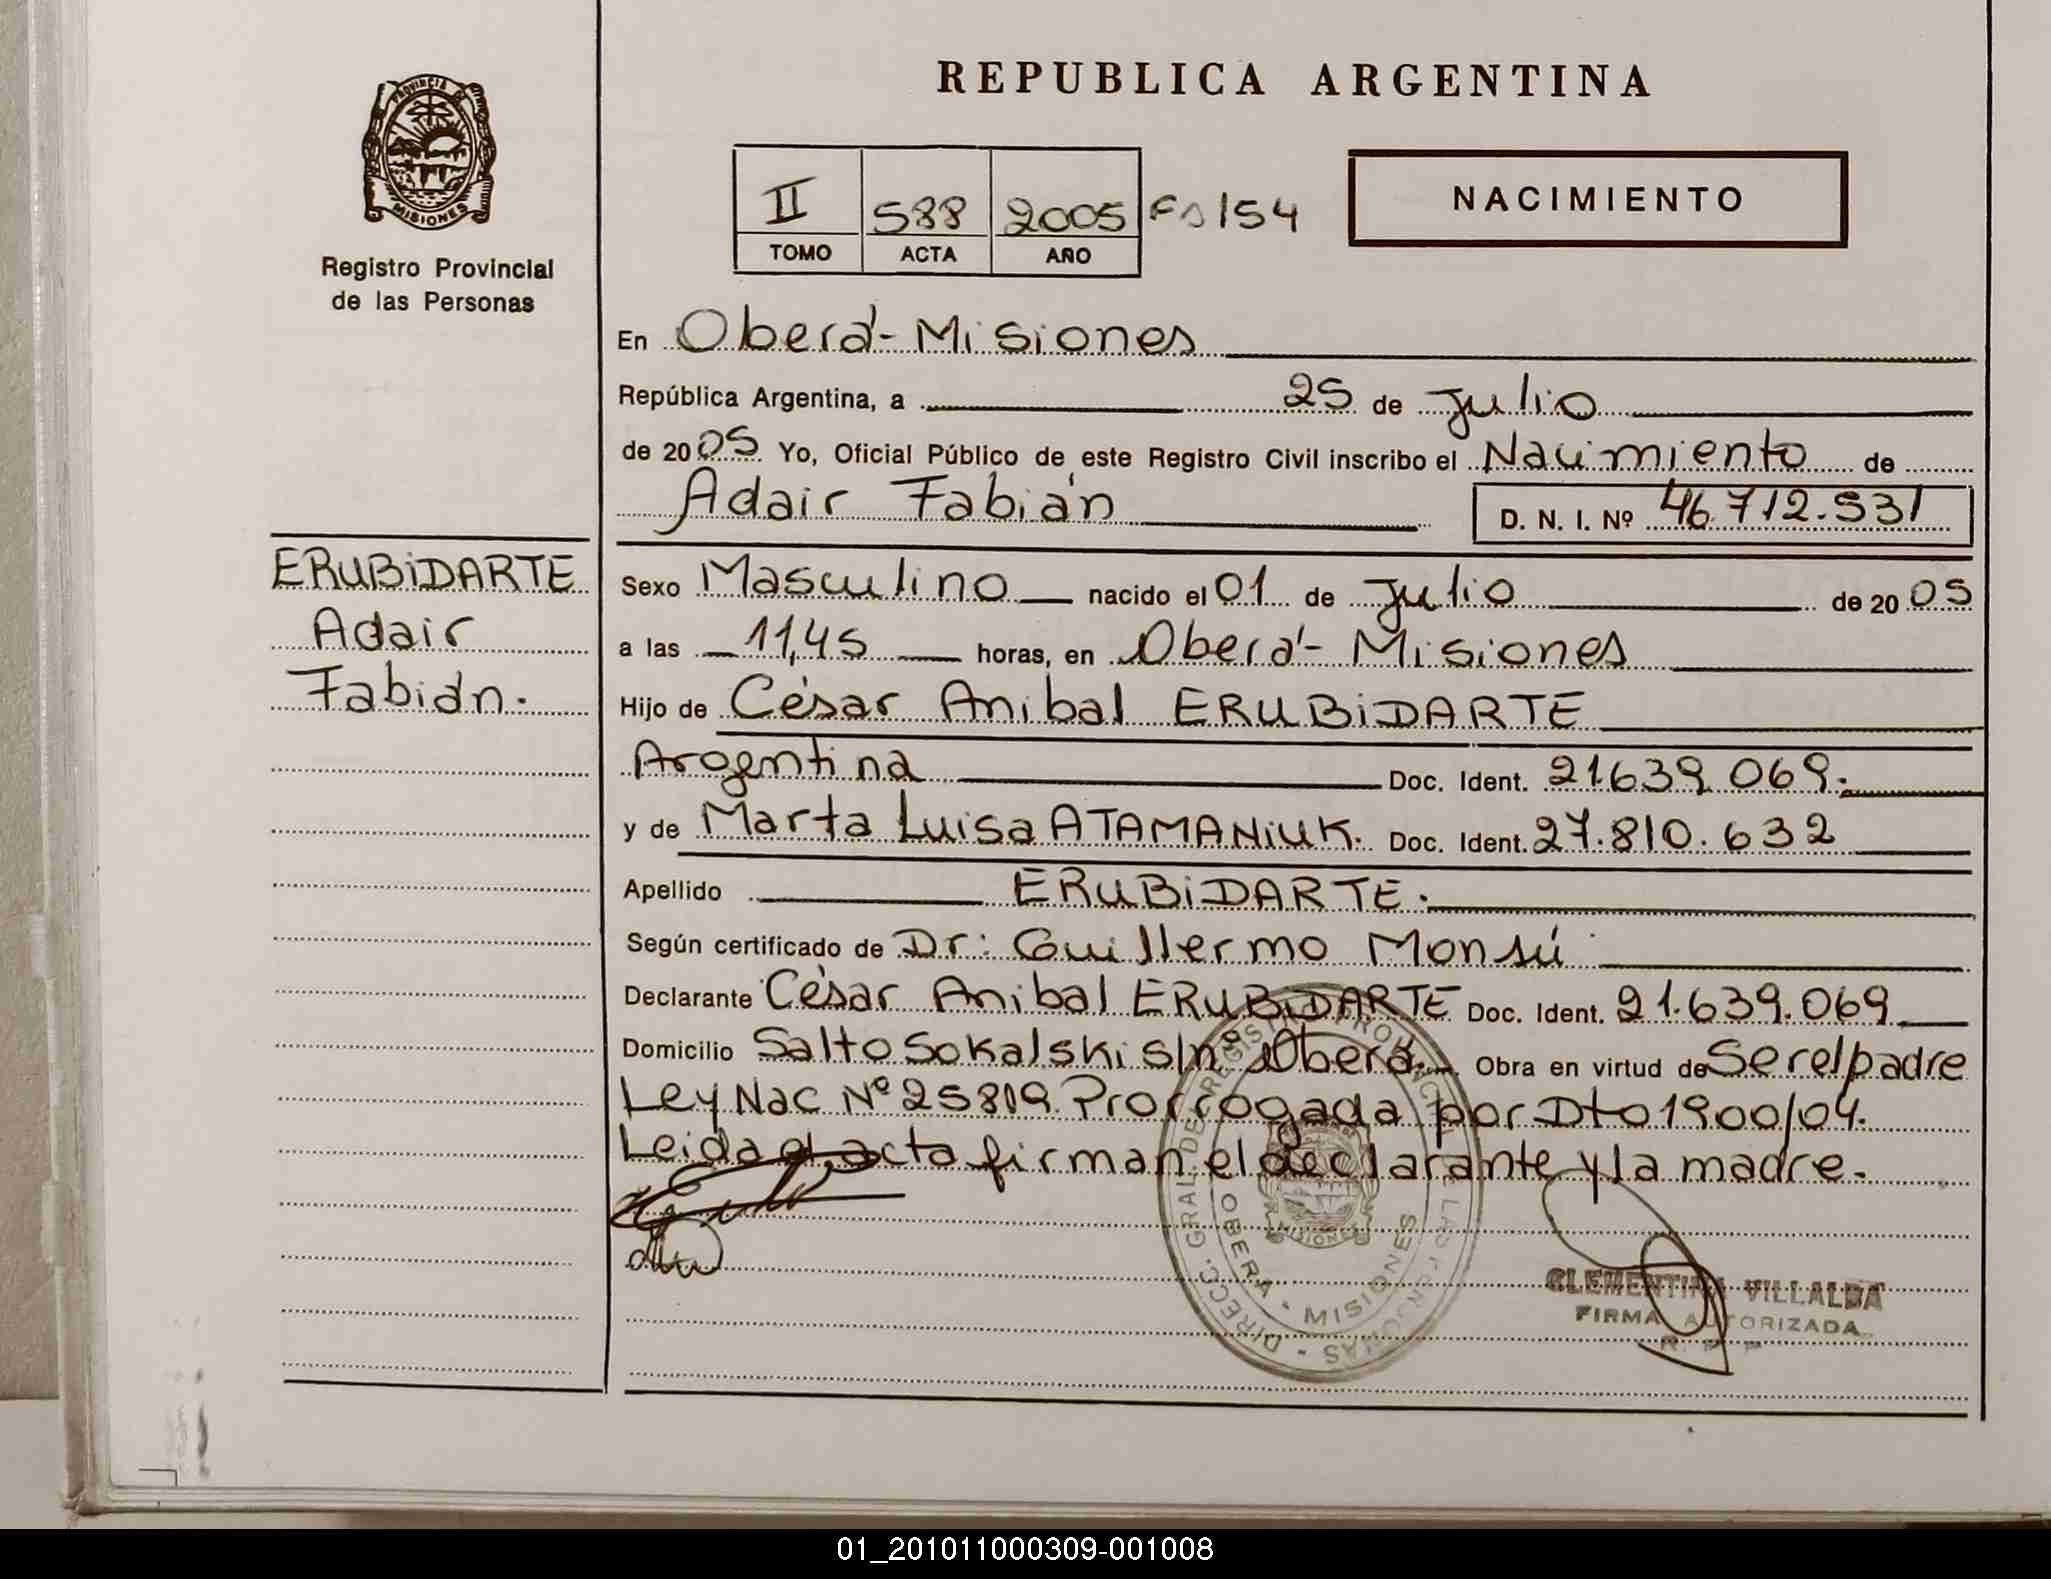 REPUBLICA ARGENTINA
PROVINCIA DE
MISIONES
Registro Provincial
de las Personas
II 588 2005 Fº 154
TOMO ACTA AÑO
NACIMIENTO
En Oberá - Misiones
República Argentina, a 25 de Julio
de 2005 Yo, Oficial Público de este Registro Civil inscribo el Nacimiento de
Adair Fabián D. N. I. Nº 46.712.531
ERUBiDARTE
Adair
Fabián.
Sexo Masculino nacido el 01 de Julio de 2005
a las 11,45 horas, en Oberá - Misiones
Hijo de César Anibal ERUBiDARTE
Argentina Doc. Ident. 21.639.069.
y de Marta Luisa ATAMANiUK. Doc. Ident. 27.810.632
Apellido ERUBiDARTE.
Según certificado de Dr: Guillermo Monsú
Declarante César Anibal ERUBiDARTE Doc. Ident. 21.639.069
Domicilio Salto Sokalski s/nº Oberá. Obra en virtud de Ser el padre
Ley Nac Nº 25819. Prorrogada por Dto 1900/04.
Leida el acta firman el declarante y la madre.
DIRECC. GRAL. DE REGISTRO PROVINCIAL DE LAS PERSONAS
OBERA - MISIONES
MISIONES
CLEMENTINA VILLALBA
FIRMA AUTORIZADA
R. P. P.
01_201011000309-001008